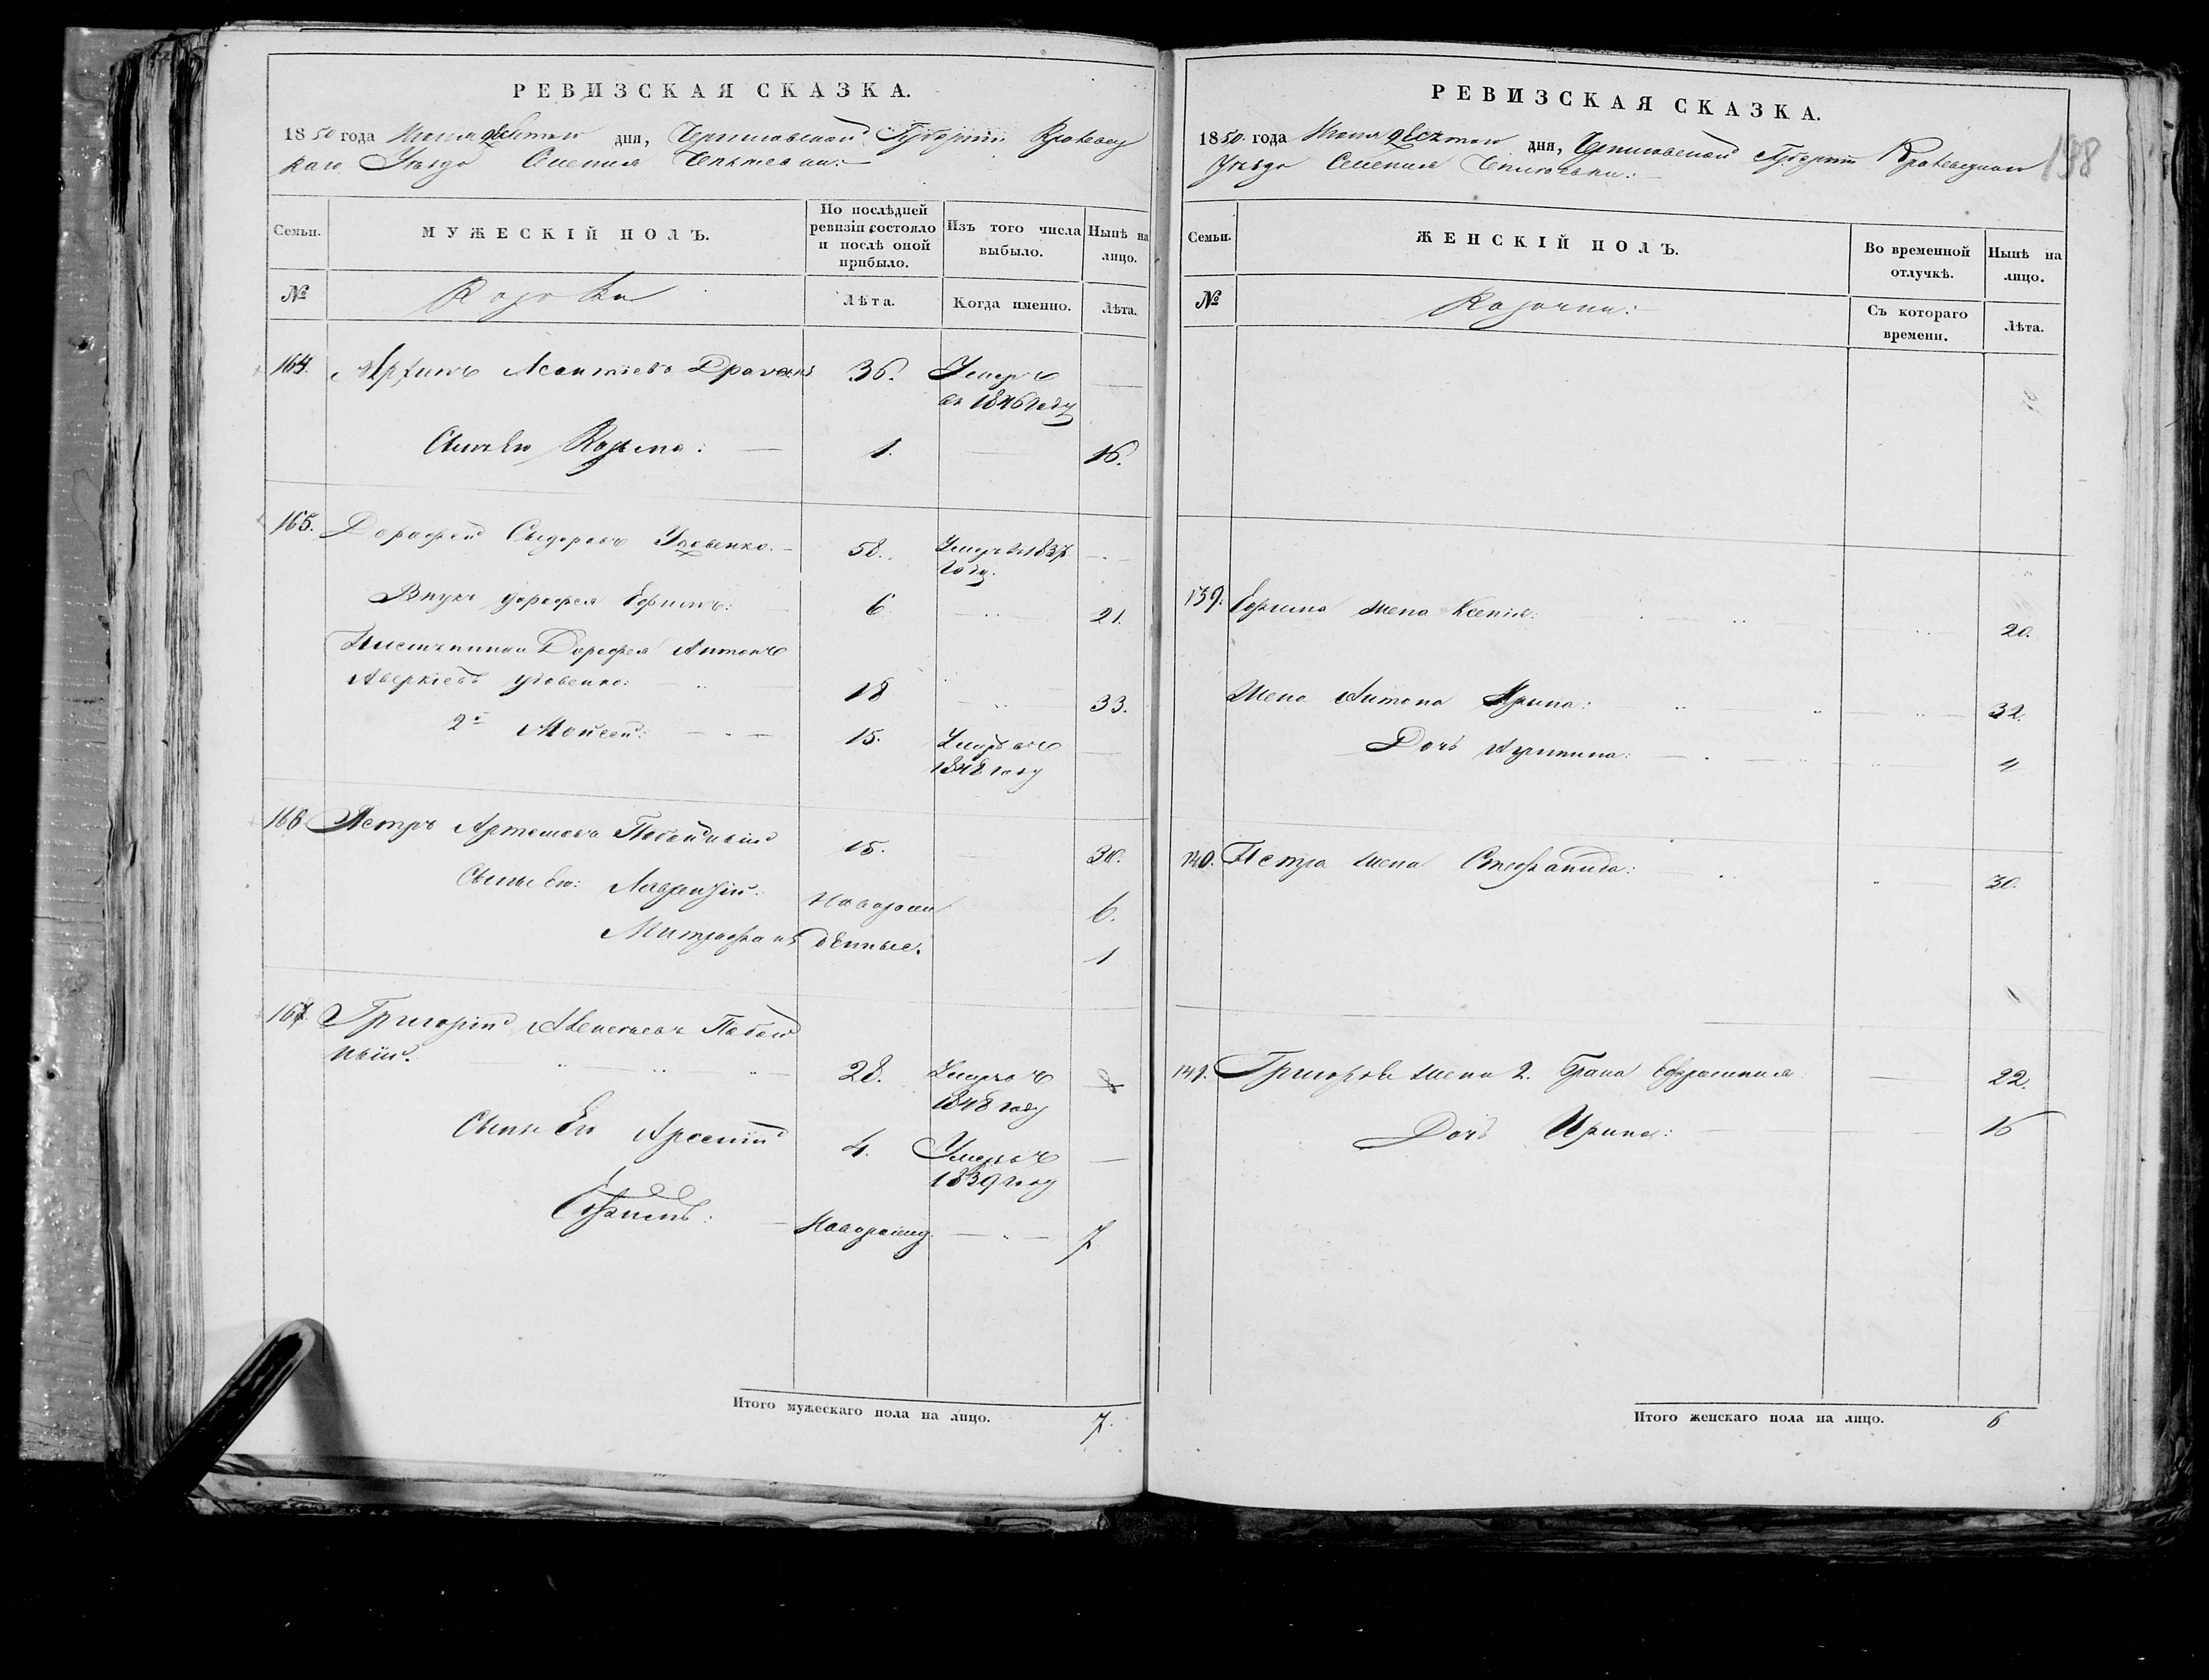 РЕВИЗСКАЯ СКАЗКА.
1850 года Июня десятого дня, Черниговской Губернии Кролевец
каго Уезда Селения
Семьи.
МУЖЕСКІЙ ПОЛЪ.
По послѣдней ревизіи состояло и послѣ оной прибыло.
Изъ того числа выбыло.
Нынѣ на лицо.
№
Козаки
Лѣта.
Когда именно.
Лѣта.
164. Леонтіевъ 36. Умеръ
въ 1846 году
Сынъ Его Козьма: 1. 16.
165. Дорофей Сидоровъ Удовенко. 58. Умеръ въ 1837
году.
Внукъ Дорофея Ефимъ: 6 21.
Племянники Дорофея Антонъ
Аверкіевъ Удовенко: 18 33.
2й Мойсей: 15. Умеръ въ
1848 году
166 Петръ Артемовъ 15. 30.
Сыны Его: Лаврентій: Новорож 6.
Митрофанъ денные. 1
167 Григорій Алексѣевъ
ный. 28. Умеръ въ
1848 году
Сыны Его Арсеній 4. Умеръ въ
1839 году
Ефимъ: Новорожд. 7
Итого мужескаго пола на лицо. 7.
РЕВИЗСКАЯ СКАЗКА.
138
1850. года Июня десятого дня, Черниговской Губерніи Кролевецкого
Уезда Селения
Семьи.
ЖЕНСКІЙ ПОЛЪ.
Во временной отлучкѣ.
Нынѣ на лицо.
№
Козачки:
Съ котораго времени.
Лѣта.
139. Ефима жена Ксенія: 20.
Жена Антона Ирина: 32.
Дочь 4
140. Петра жена Стефанида: 30.
141. Григорія жена 2. брака Ефросинія 22.
Дочь Ирина: 16
Итого женскаго пола на лицо. 6